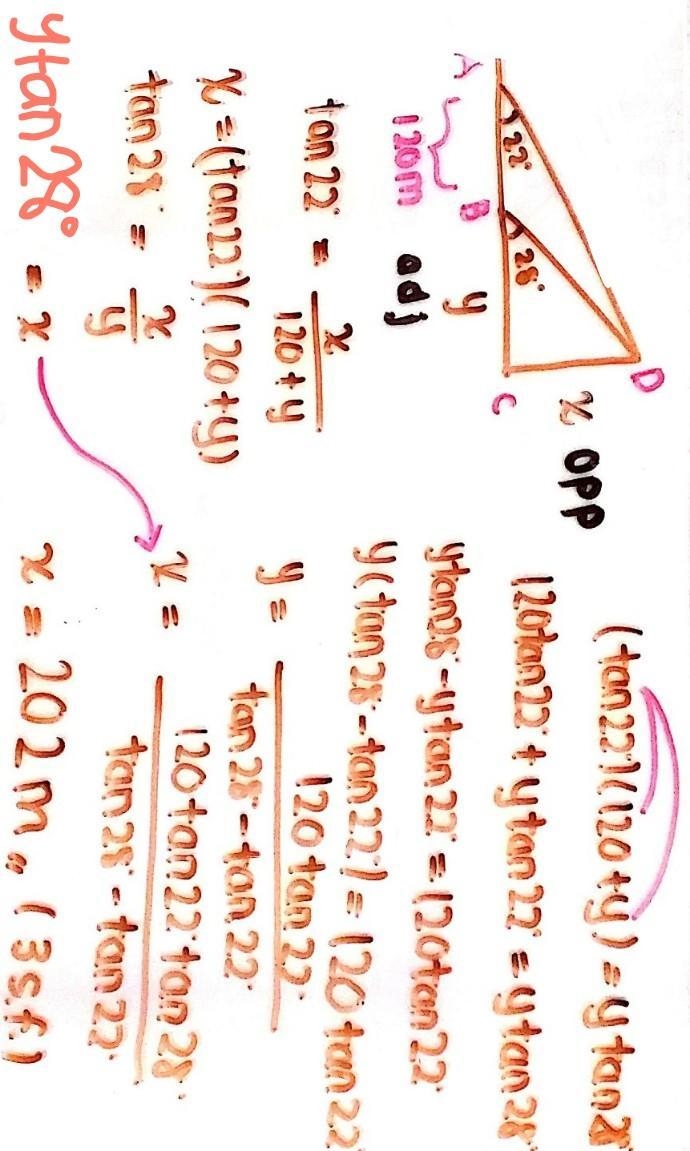 D
x opp
22° 28°
A B C
120m y
adj
tan 22° = x/(120+y)
x = (tan 22°)(120+y)
tan 28° = x/y
y tan 28° = x
(tan 22°)(120+y) = y tan 28°
120 tan 22° + y tan 22° = y tan 28°
y tan 28° - y tan 22° = 120 tan 22°
y (tan 28° - tan 22°) = 120 tan 22°
y = 120 tan 22°/(tan 28° - tan 22°)
x = 120 tan 22° tan 28°/(tan 28° - tan 22°)
x = 202 m,, (3 s.f.)